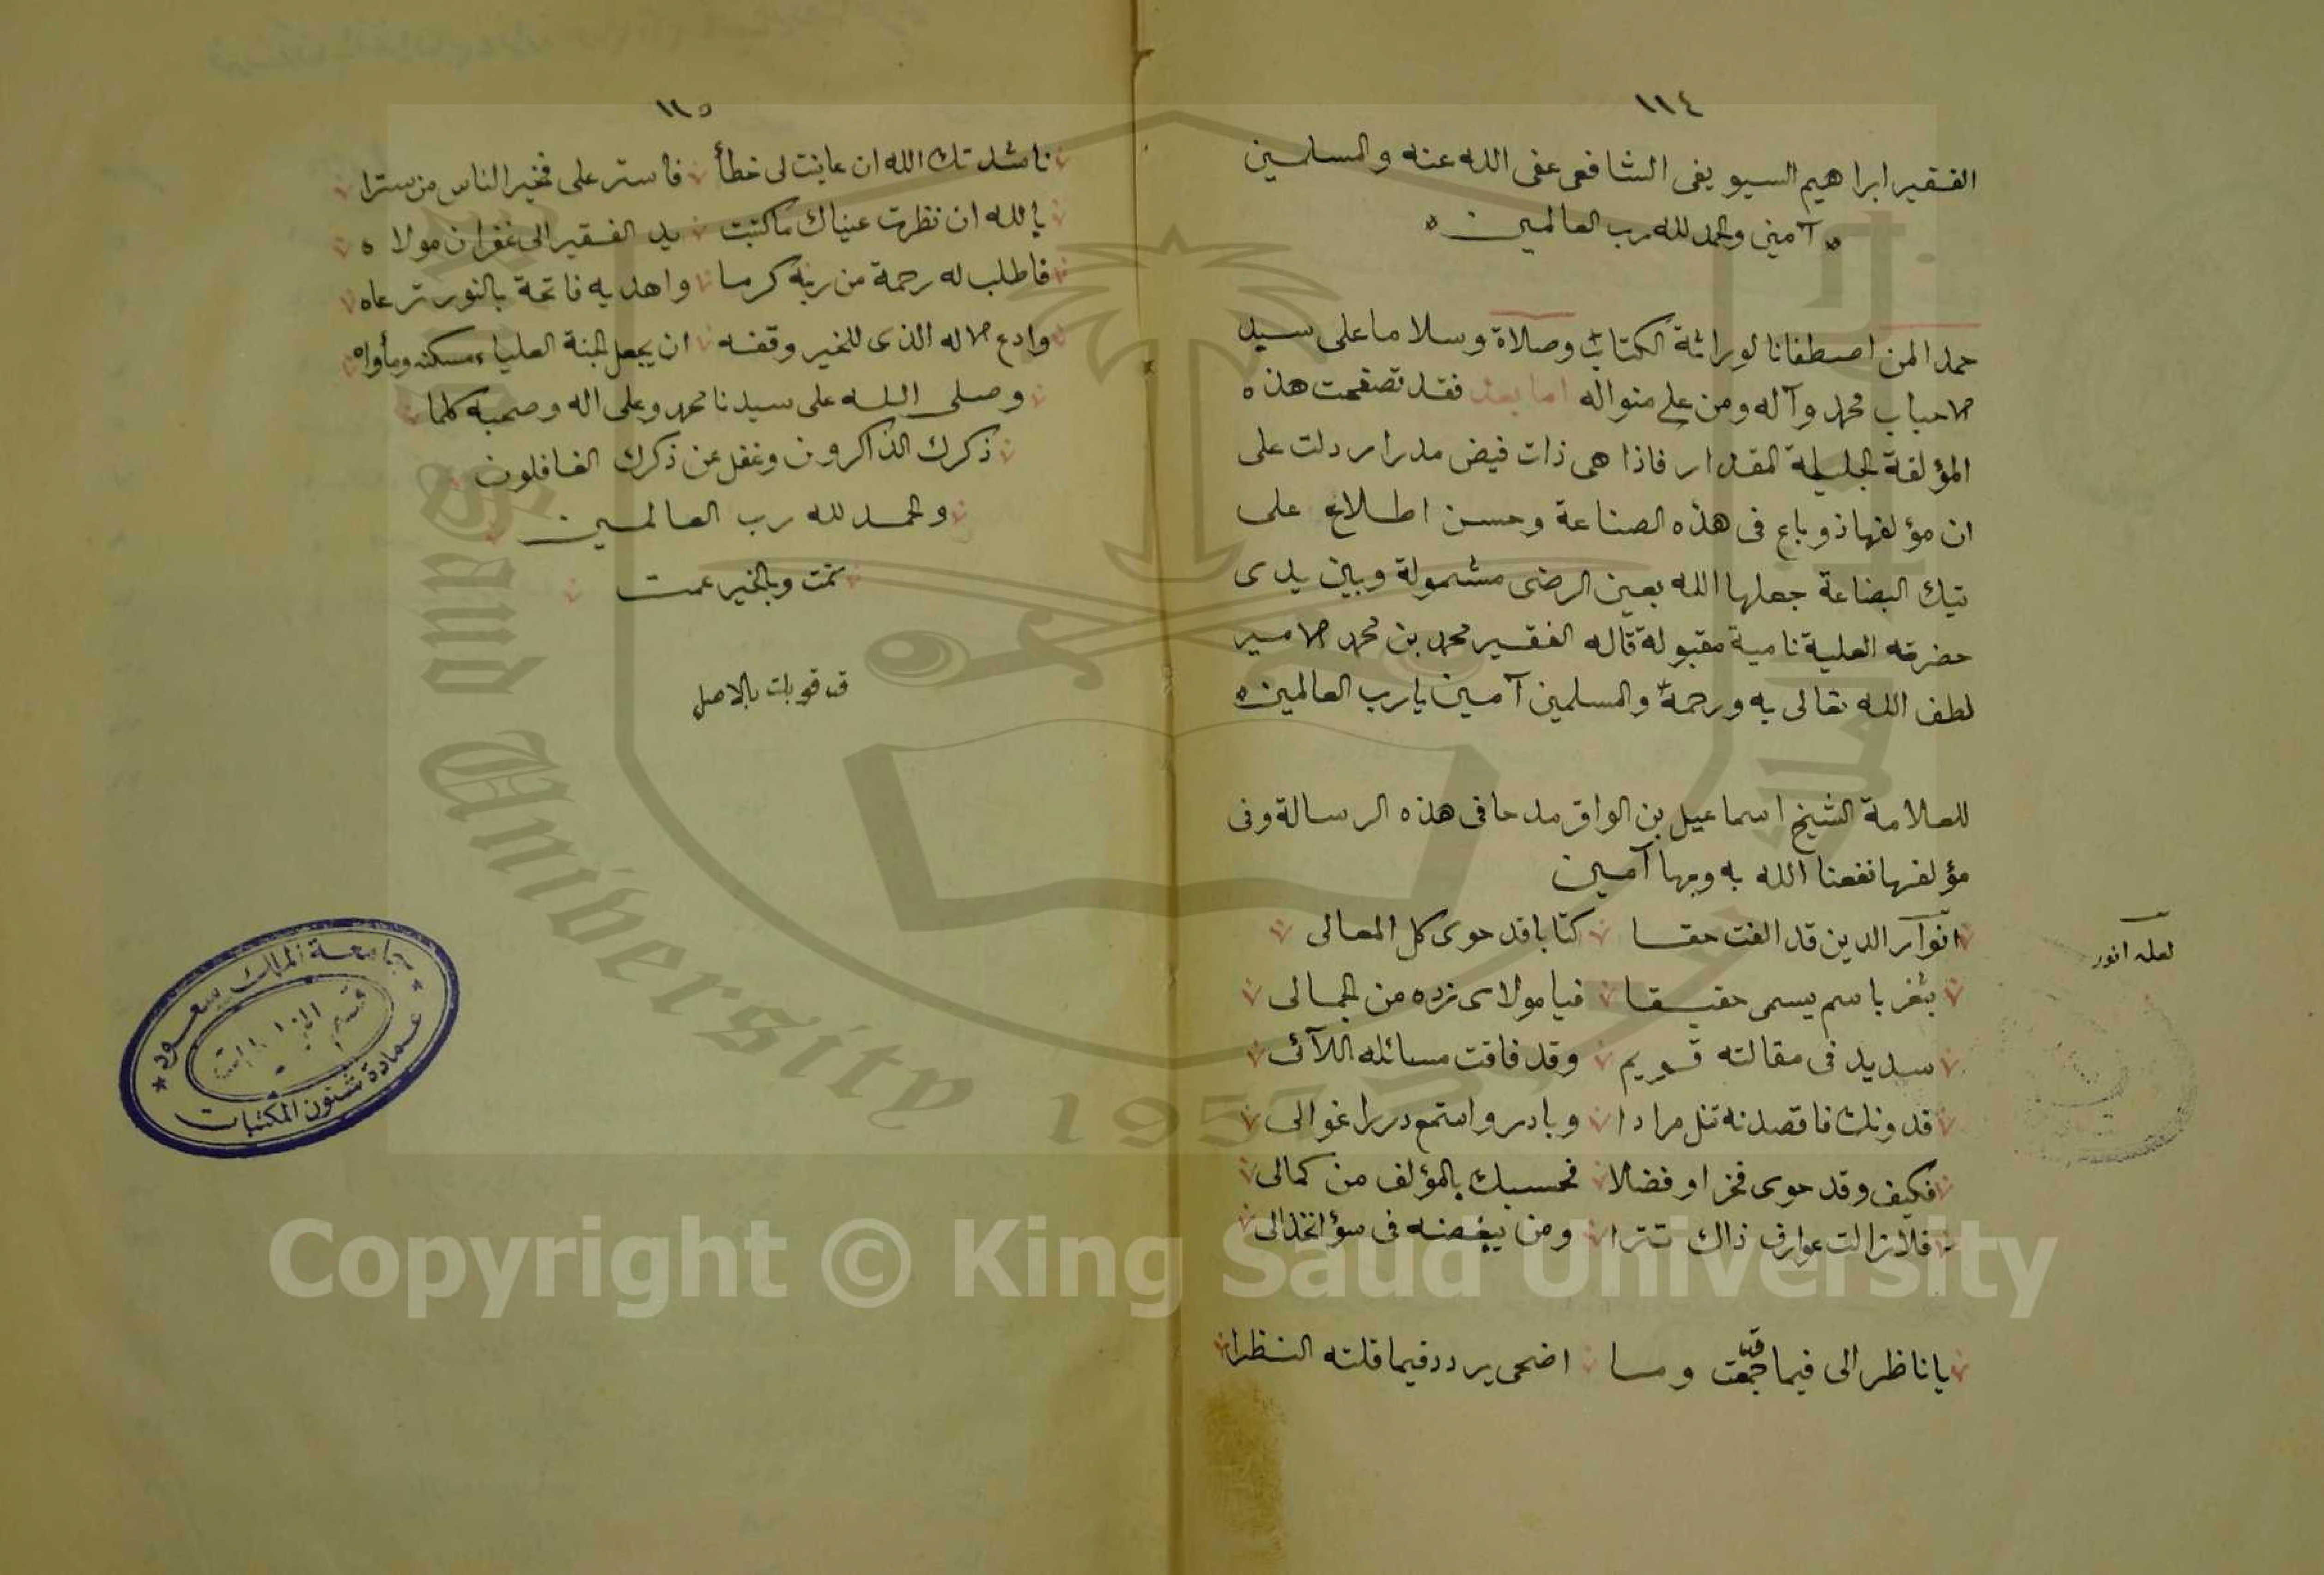 ١١٤
الفقير ابراهيم السيويفى الشافعى عفى الله عنه والمسلمين
آمين والحمد لله رب العالمين
حمدا لمن اصطفانا لوراثة الكتاب وصلاة وسلاما على سيد
الاحباب محمد وآله ومن على منواله اما بعد فقد تصفحت هذه
المؤلفة الجليلة المقدار فاذا هى ذات فيض مدرار دلت على
ان مؤلفها ذو باع فى هذه الصناعة وحسن اطلاع على
تيك البضاعة جعلها الله بعين الرضى مشمولة وبين يدى
حضرته العلية نامية مقبولة قاله الفقير محمد بن محمد الامير
لطف الله تعالى به ورحمه والمسلمين آمين يارب العالمين
للعلامة الشيخ اسماعيل بن الواقر مدحا فى هذه الرسالة وفى
مؤلفها نفعنا الله به وبها آمين
انوار الدين قد الفت حقا كتابا قد حوى كل المعالى
لعله انور
بثغر باسم يسمى حقيقا فيا مولاى زده من الجمالى
سديد فى مقالته قويم وقد فاقت مسائله اللآلى
فدونك فاقصدنه تنل مرادا وبادر واستمع دررا غوالى
فكيف وقد حوى فخرا وفضلا فحسبك بالمؤلف من كمالى
فلازالت عوارف ذاك تترا ومن يبغضه فى سؤ انخذالى
يا ناظرا لى فيما قد جمعت ومـا اضحى يردد فيما قلته النظرا
١١٥
ناشدتك الله ان عاينت لى خطأ فاستر على فخير الناس من سترا
بالله ان نظرت عيناك ماكتبت يد الفقير الى غفران مولاه
فاطلب له رحمة من ربه كرما واهديه فاتحة بالنور ترعاه
وادع الاله الذى للخير وقفه ان يجعل الجنة العلياء مسكنه ومأواه
وصلى الله على سيدنا محمد وعلى اله وصحبه كلما
ذكرك الذاكرون وغفل عن ذكرك الغافلون
والحمد لله رب العالمين
تمت وبالخير عمت
قد قوبلت بالاصل
جامعة الملك سعود
عمادة شئون المكتبات
قسم
King Saud University
1957
Copyright © King Saud University